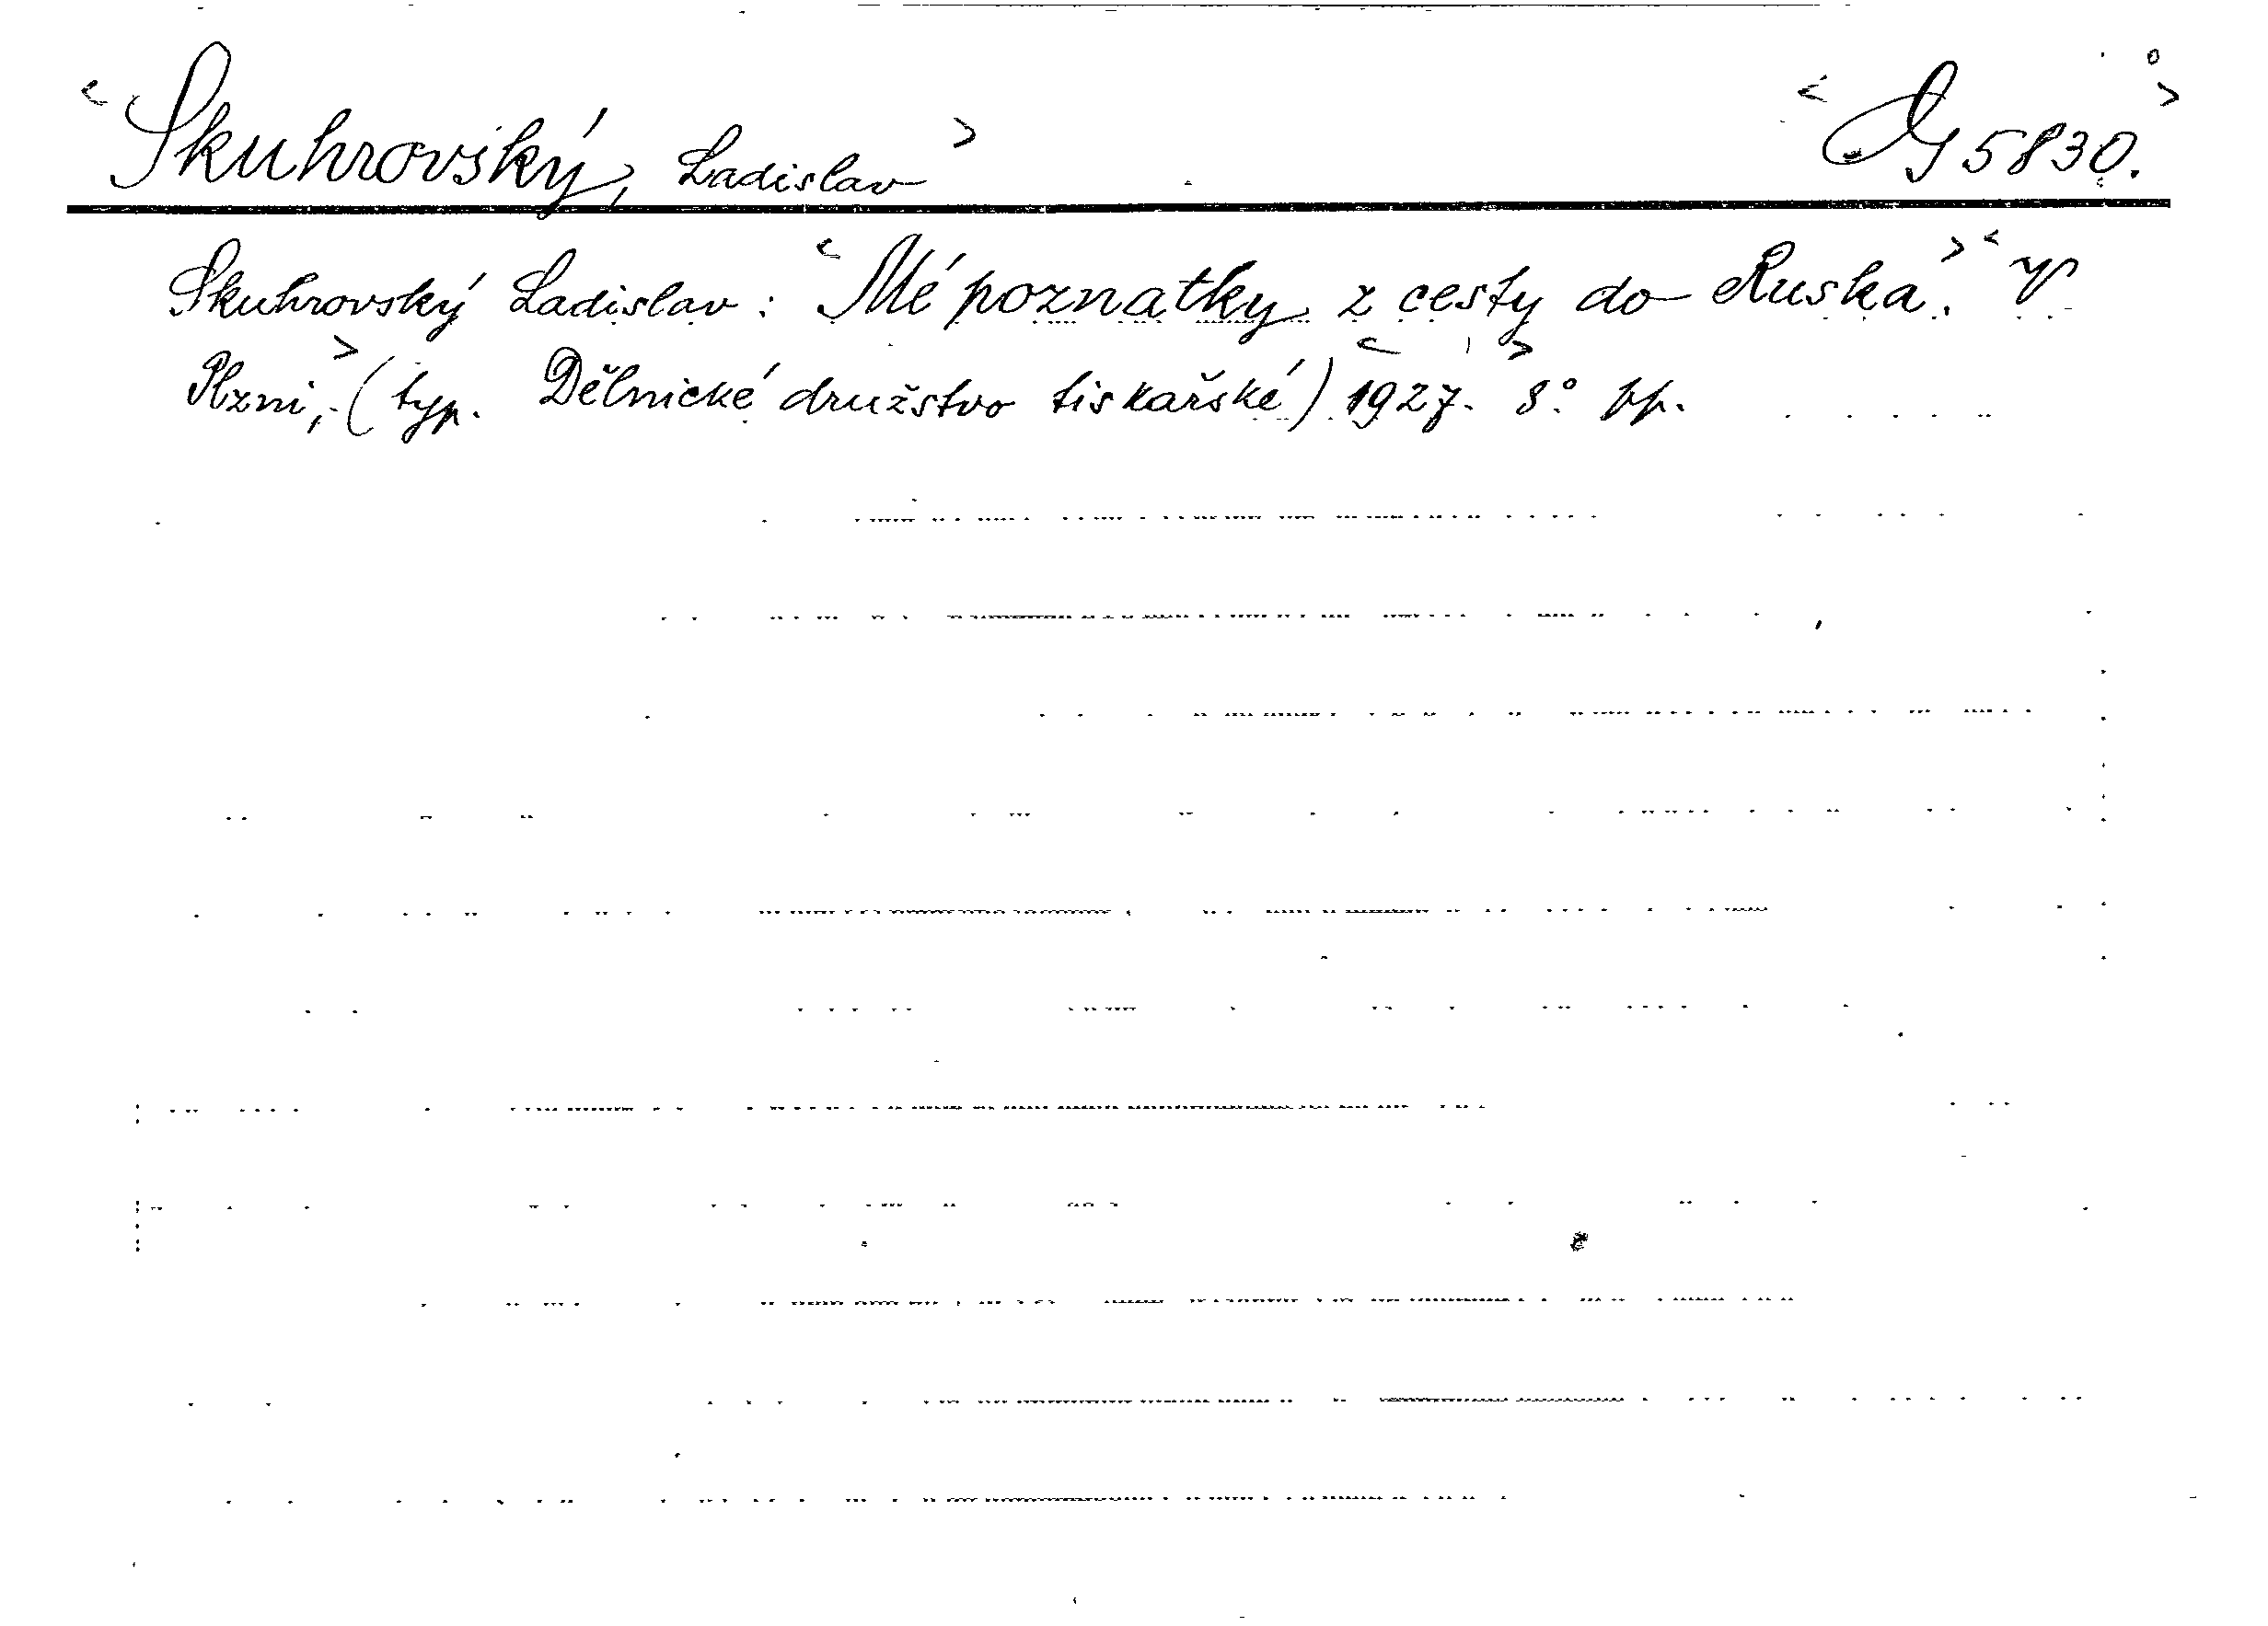 <Skuhrovský, Ladislav> <G 5830.>
Skuhrovský Ladislav: <Mé poznatky z cesty do Ruska.> <V
Plzni,> (typ. Dělnické družstvo tiskařské) <1927.> 8° pp.